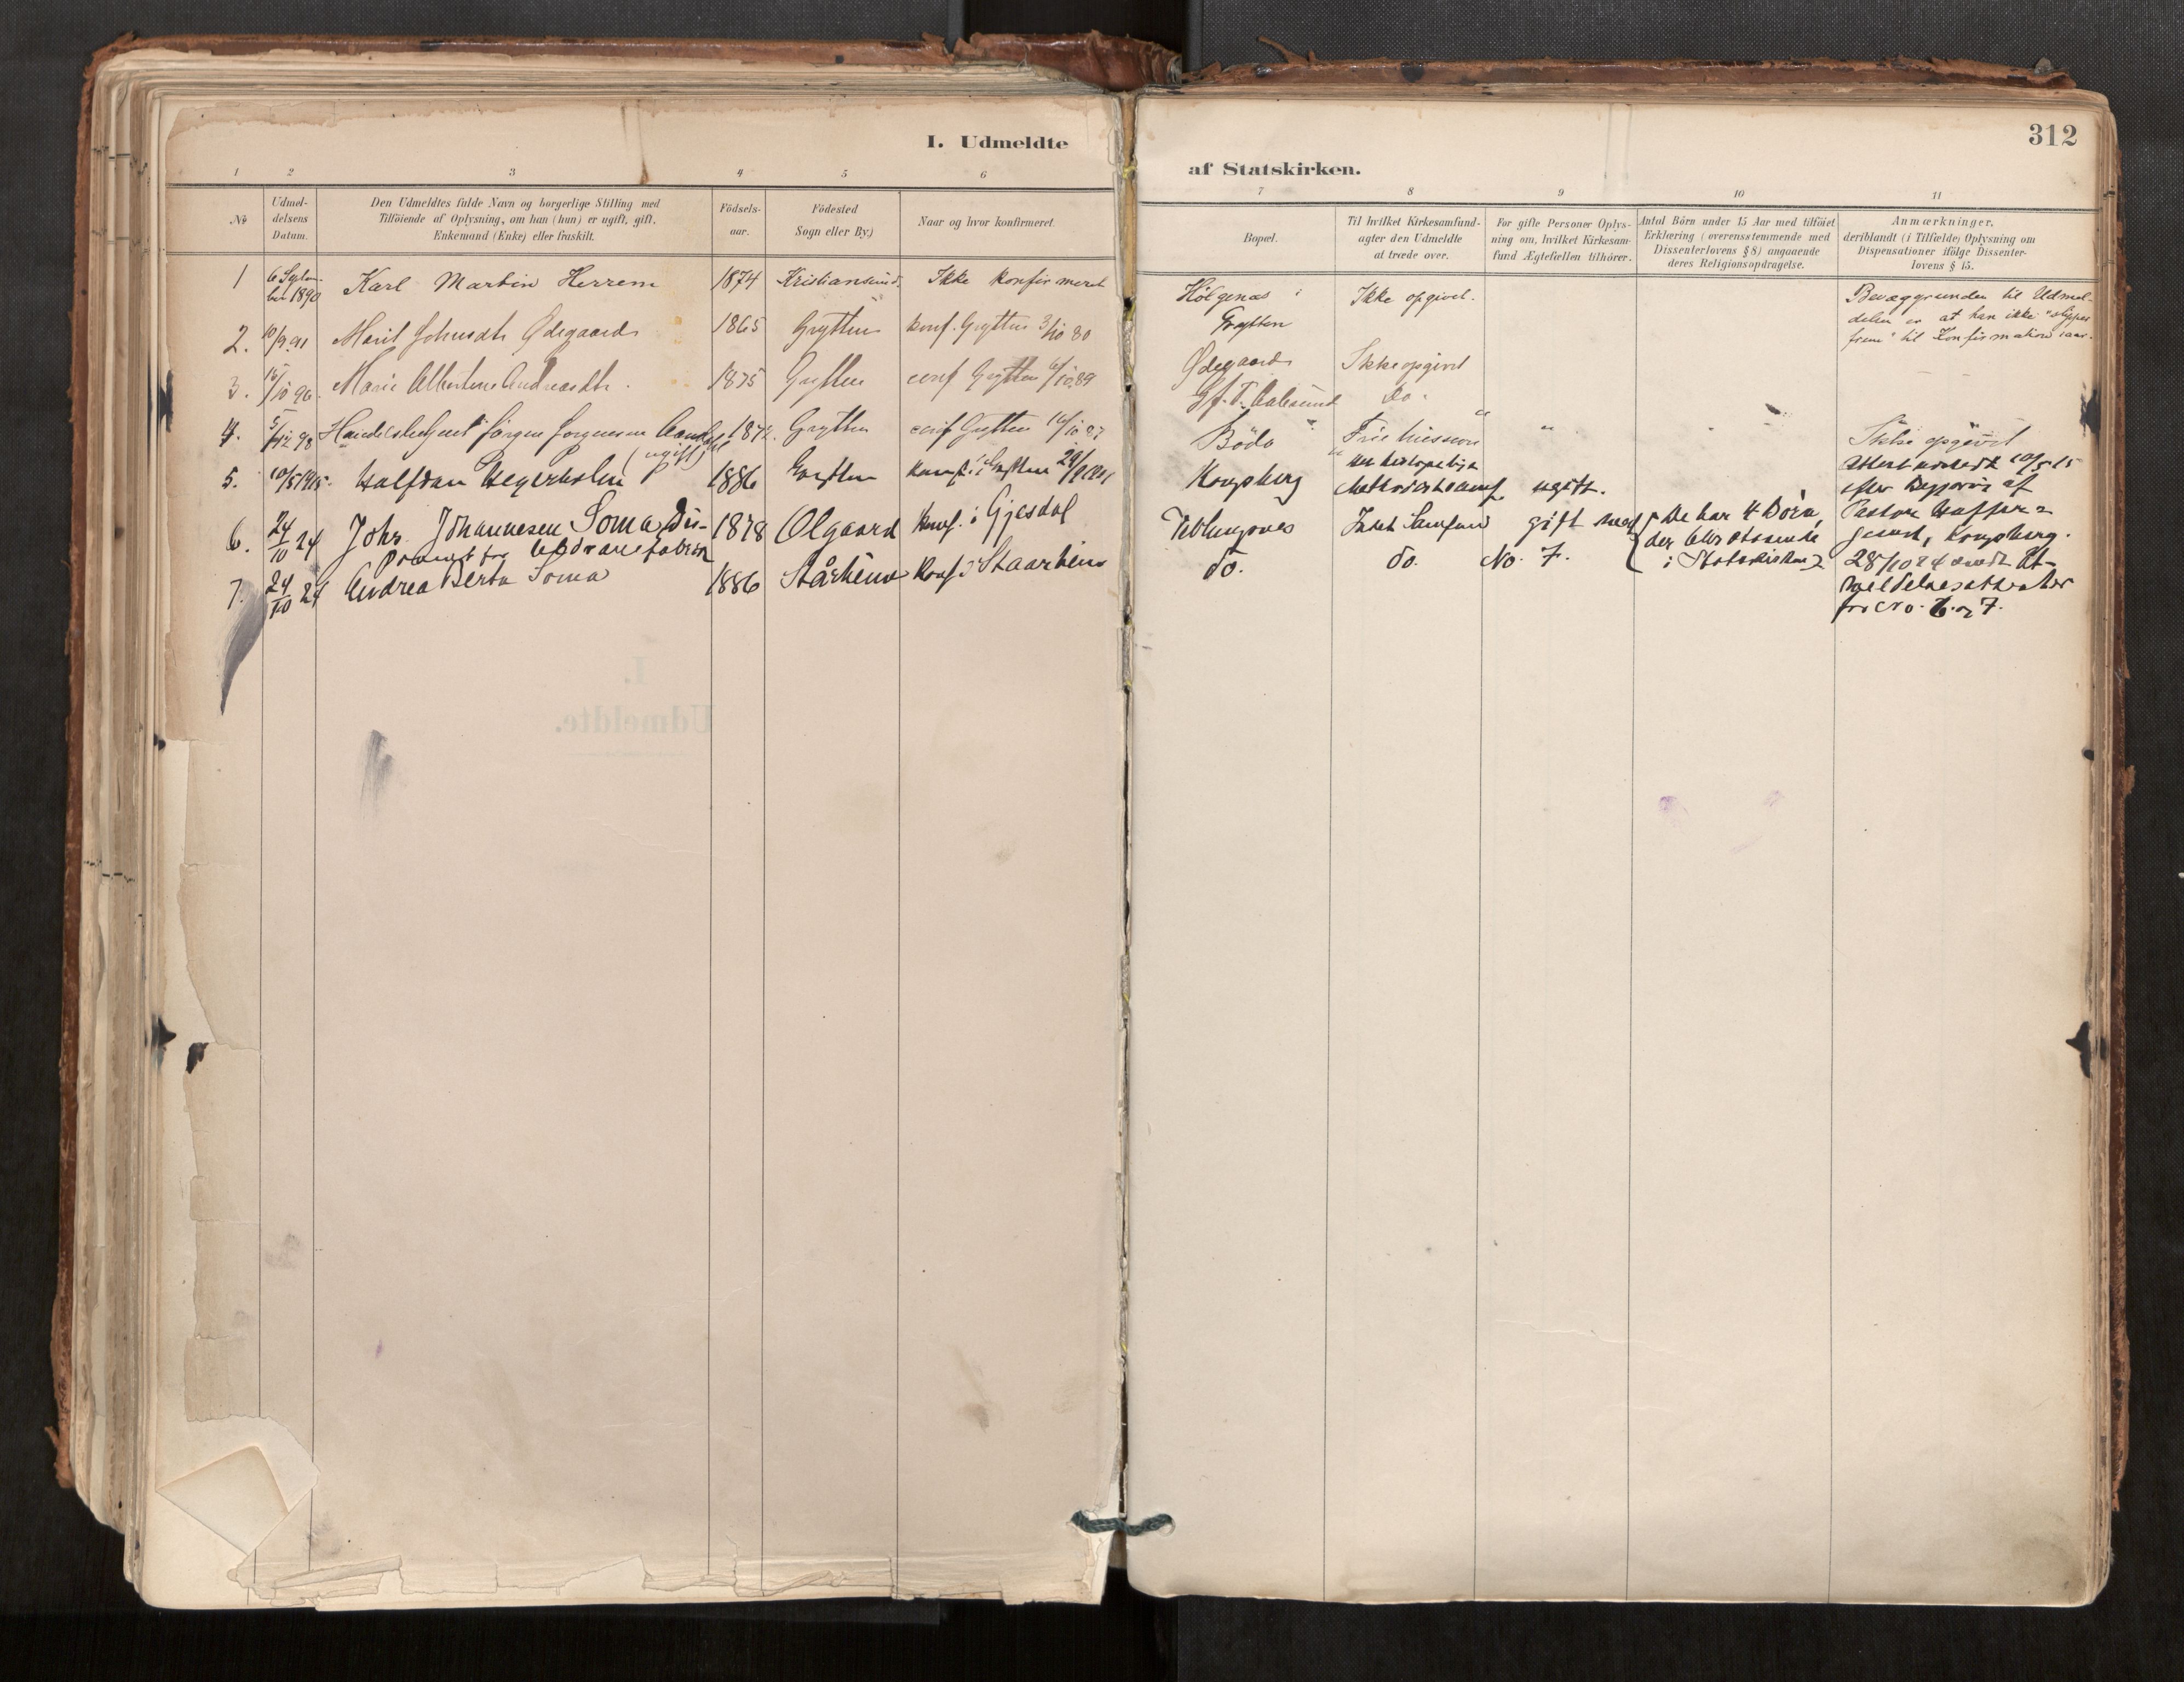 I. Udmeldte
af Statskirken.
312
1 2 3 4 5 6
7 8 9 10 11
№
Udmel-
delsens
Datum.
Den Udmeldtes fulde Navn og borgerlige Stilling med
Tilföiende af Oplysning, om han (hun) er ugift, gift,
Enkemand (Enke) eller fraskilt.
Födsels-
aar.
Födested
Sogn eller By.)
Naar og hvor konfirmeret.
Bopæl.
Til hvilket Kirkesamfund
agter den Udmeldte
at træde over.
For gifte Personer Oplys-
ning om, hvilket Kirkesam-
fund Ægtefællen tilhörer.
Antal Börn under 15 Aar med tilföiet
Erklæring (overensstemmende med
Dissenterlovens § 8) angaaende
deres Religionsopdragelse.
Anmærkninger,
deriblandt (i Tilfælde) Oplysning om
Dispensationer ifölge Dissenter-
lovens § 15.
1 6 Septem-
ber 1890 Karl Martin Herrem 1874 Kristiansund. Ikke konfirmeret
Holgenæs i
Grytten
Ikke opgivet.
Bevæggrunden til Udmel-
delsen er at han ikke "slipper
frem" til Konfirmation iaar.
2. 10/9 91 Marit Johnsdtr Ødegaard 1865 Grytten konf. Grytten 3/10 80
Ødegaard Ikke opgivet
3. 16/10 96. Marie Albertine Andreasdtr. 1875 Grytten conf Grytten 6/10 89
Aalesund Do.
4. 5/12 98 Handelsbetjent Jörgen Jörgensen (ugift) 1872. Grytten conf Grytten 16/10 87
Bödo Frie Mission " Ikke opgivet
5. 10/5 1915. Halfdan Hegerholm 1886 Grytten konf. i Grytten 29/9 1901
Kongsberg
Methodistsamf. ugift.
Attest udstedt 10/5 15
efter Begjæring af
Pastor
Kongsberg.
6. 24/10 24 Johs. Johannesen Soma, Dis-
ponent for Uldvarefabrik 1878 Olgaard Konf. i Gjesdal
Veblungsnes Intet Samfund gift med
No. 7.
De har 4 Börn,
der alle
i Statskirken
7. 24/10 24 Andrea Berta Soma 1886 Stårheim Konf. i Staarheim
do. do.
28/10 24 Ut-
meldelsesattester
for No. 6 og 7.
I.
Udmeldte.